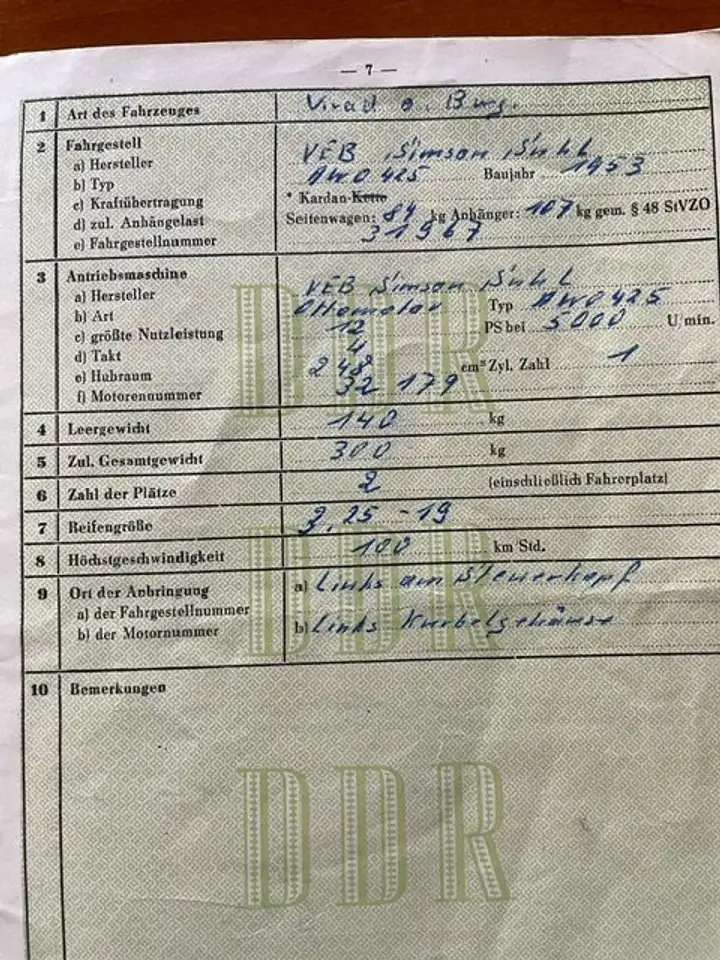 — 7 —
1 Art des Fahrzeuges Krad o. Bwg.
2 Fahrgestell
a) Hersteller VEB Simson Suhl
b) Typ AWO 425 Baujahr 1953
c) Kraftübertragung * Kardan-Kette
d) zul. Anhängelast Seitenwagen: 84 kg Anhänger: 107 kg gem. § 48 StVZO
e) Fahrgestellnummer 31967
3 Antriebsmaschine
a) Hersteller VEB Simson Suhl
b) Art Ottomotor Typ AWO 425
c) größte Nutzleistung 12 PS bei 5000 U/min.
d) Takt 4
e) Hubraum 248 cm³ Zyl. Zahl 1
f) Motorennummer 32 179
4 Leergewicht 140 kg
5 Zul. Gesamtgewicht 300 kg
6 Zahl der Plätze 2 (einschließlich Fahrerplatz)
7 Reifengröße 3,25 - 19
8 Höchstgeschwindigkeit 100 km Std.
9 Ort der Anbringung
a) der Fahrgestellnummer a) Links am Steuerkopf
b) der Motornummer b) Links Kurbelgehäuse
10 Bemerkungen
DDR
DDR
DDR